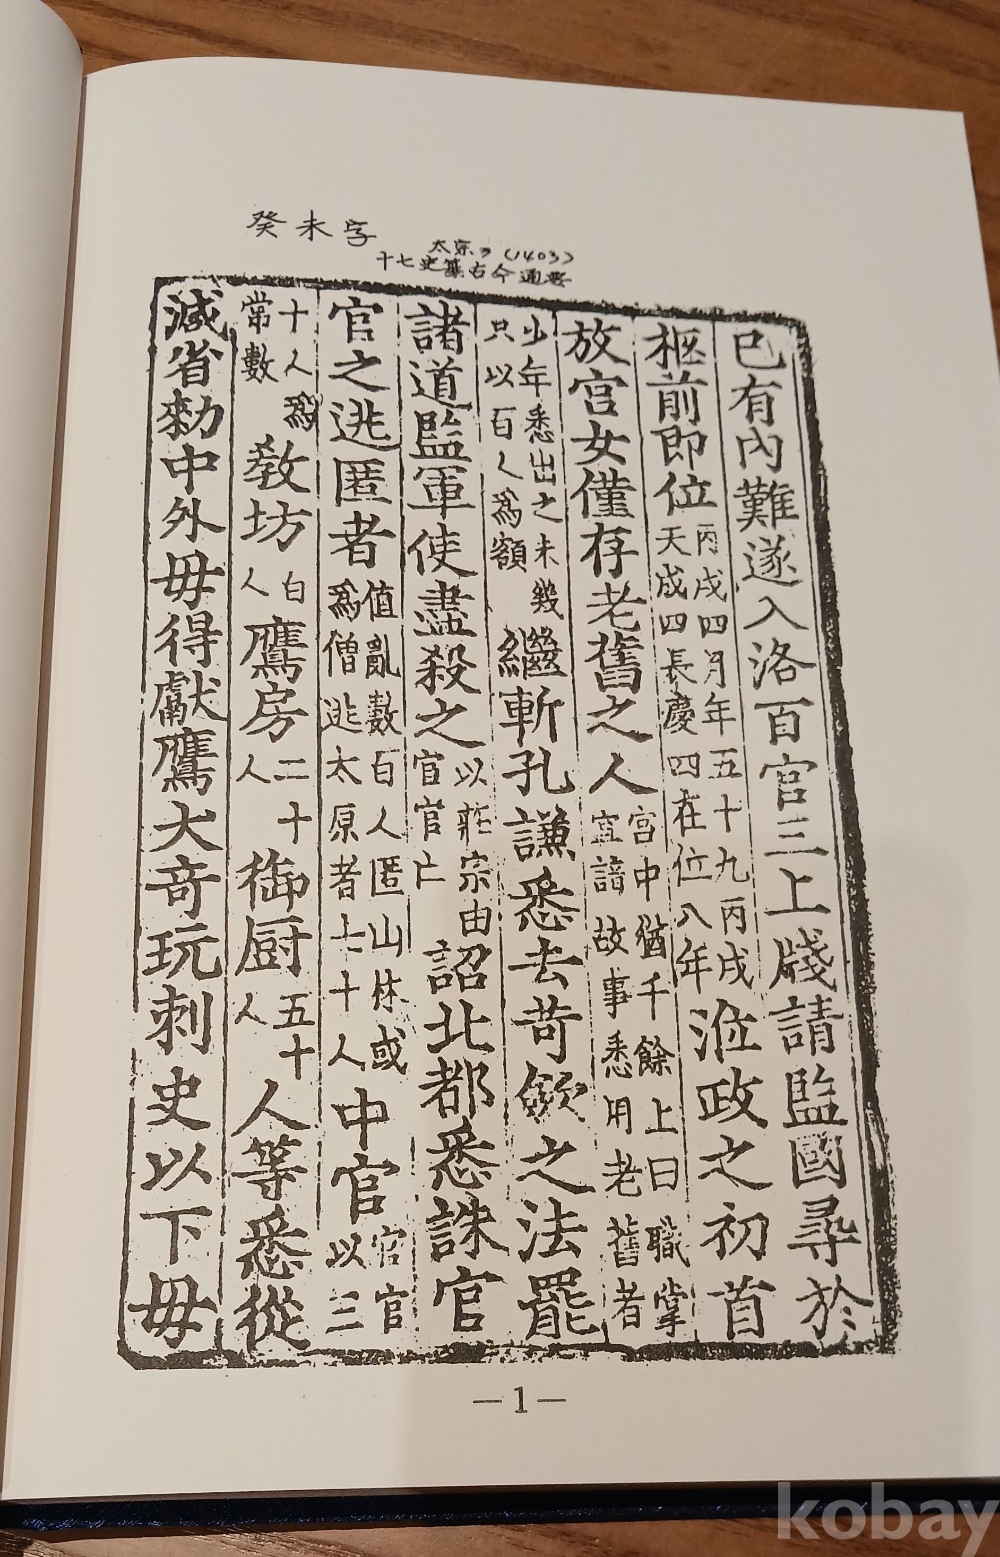 癸未字
太宗3 (1403)
十七史纂古今通要
已有內難遂入洛百官三上牋請監國尋於
柩前即位
丙戌四月年五十九丙戌
天成四長慶四在位八年
涖政之初首
放宮女僅存老舊之人
宮中猶千餘上曰職掌
宜諳故事悉用老舊者
少年悉出之未幾
只以百人爲額
繼斬孔謙悉去苛斂之法罷
諸道監軍使盡殺之
以莊宗由
宦官亡
詔北都悉誅宦
官之逃匿者
值亂數百人匿山林或
爲僧逃太原者七十人
中官
宦官
以三
十人爲
常數
敎坊
百
人
鷹房
二十
人
御厨
五十
人
人等悉從
減省勑中外毋得獻鷹犬奇玩刺史以下毋
—1—
kobay